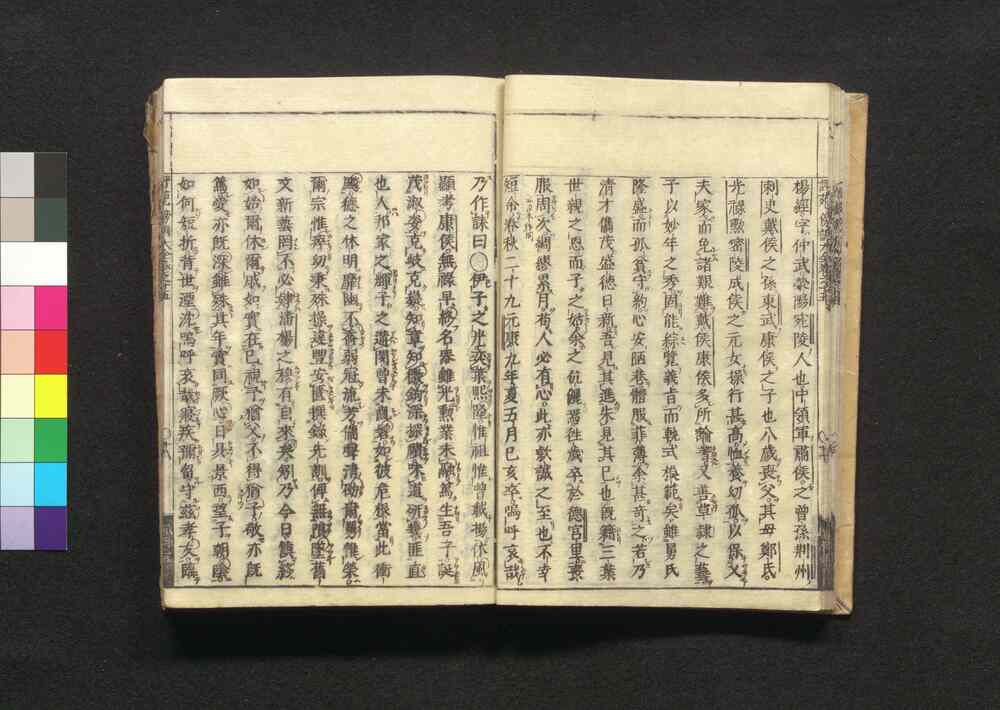 楊經字仲武滎陽宛陵人也中領軍肅侯之曾孫荆州
刺史戴侯之孫東武康侯之子也八歳喪父其母鄭氏
光祿勲密陵成侯之元女操行甚高恤養幼孤以保乂
夫家而免諸艱難戴侯康侯多所論著又善草隷之藝
子以妙年之秀固能綜覽義旨而軌式模範矣雖舅氏
隆盛而孤貧守約心安陋巷體服菲薄余甚奇之若乃
清才儁茂盛德日新吾見其進未見其已也旣籍三葉
世親之恩而子之姑余之伉儷焉徃歳卒於德宮里喪
服周次綢繆累月苟人必有心此亦欵誠之至也不幸
短命春秋二十九元康九年夏五月己亥卒嗚呼哀哉
乃作誄曰伊子之先奕葉熙隆惟祖惟曾載揚休風
顯考康侯無祿早終名器雖光勲業未融篤生吾子誕
茂淑姿克岐克嶷知章知微鈎深探賾味道研幾匪直
也人邦家之輝子之遘閔曾未齓髫如彼危根當此衝
飈德之休明靡幽不喬弱冠流芳儁聲清劭爾舅惟榮
爾宗惟瘁幼秉殊操違豐安匱撰錄先訓俾無隕墜舊
文新藝罔不必肄潘楊之穆有自來矣矧乃今日愼終
如始爾休爾戚如實在己視予猶父不得猶子敬亦旣
篤愛亦旣深雖殊其年實同厥心日昃景西望子朝陰
如何短折背世湮沈嗚呼哀哉寢疾彌留守兹孝友臨